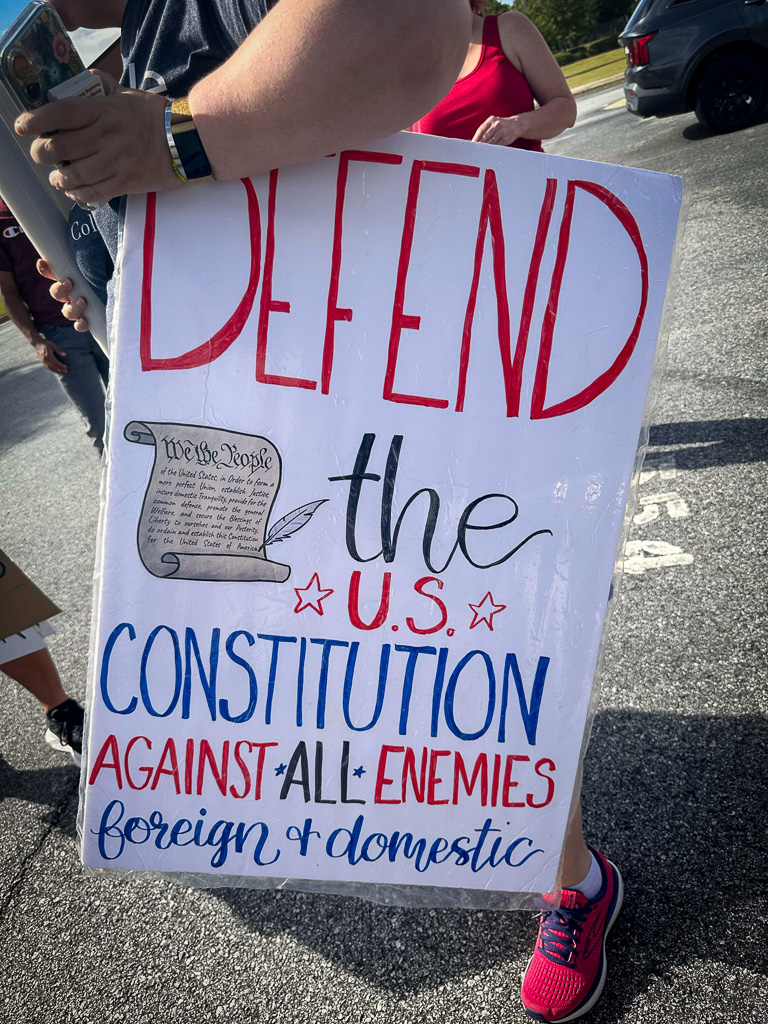 DEFEND
We the People
of the United States, in Order to form a
more perfect Union, establish Justice
insure domestic Tranquility, provide for the
common defence, promote the general
Welfare, and secure the Blessings of
Liberty to ourselves and our Posterity,
do ordain and establish this Constitution
for the United States of America
the
U.S.
CONSTITUTION
AGAINST ALL ENEMIES
foreign & domestic
Col